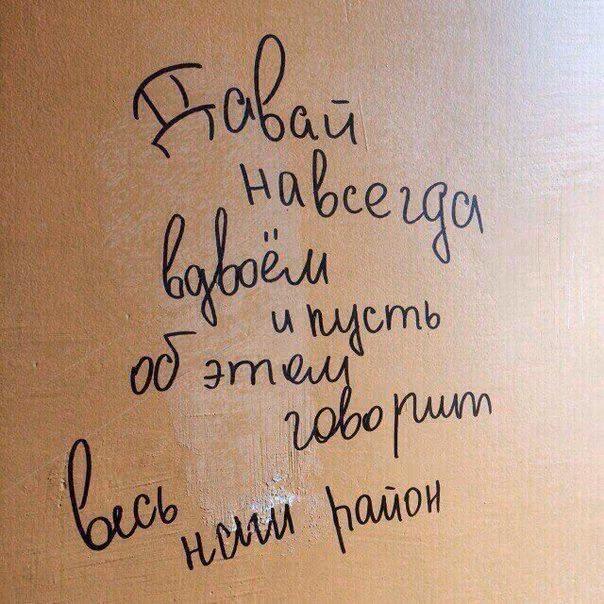 Давай
навсегда
вдвоём
и пусть
об этом
говорит
весь
наш район